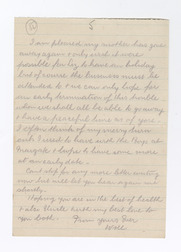 5
I am pleased my mother has you
away again & only wish it were
possible for Liz to have a holiday
but of course the business must be
attended to & we can only hope for
an early termination of this trouble
then we shall all be able to
& have a peaceful time as of yore.
I often think of my
with & wish to have with the Boys at
& hope to have some more
at an early date.
Can't stop for any more letter writing
now but will let you hear again
shortly.
Hoping you are in the best of health
& my best love to
you both. From yours Ever
Will